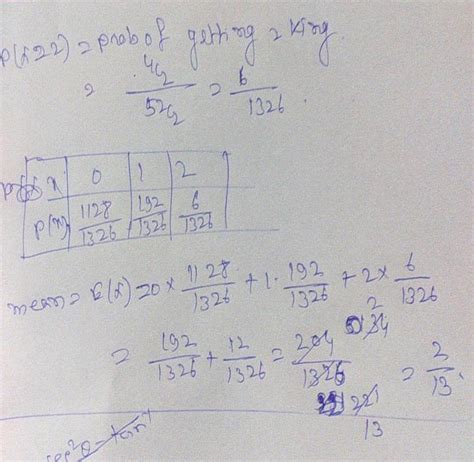 P(x=2) = prob of getting 2 king.
= 4C2 / 52C2 = 6/1326
x | 0 | 1 | 2
P(x) | 1128/1326 | 192/1326 | 6/1326
mean = E(x) = 0 × 1128/1326 + 1 · 192/1326 + 2 × 6/1326
= 192/1326 + 12/1326 = 204/1326 = 2/13.
2
34
221
13